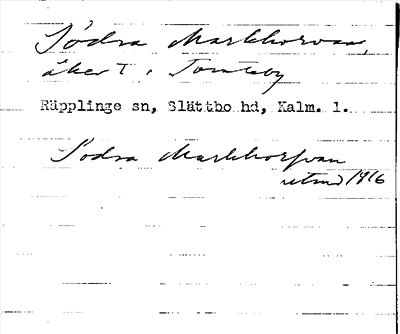 Södra Markhorvan,
åker t. Tomteby
Räpplinge sn, Slättbo hd, Kalm. l.
Södra Markhorfvan
utmd 1916